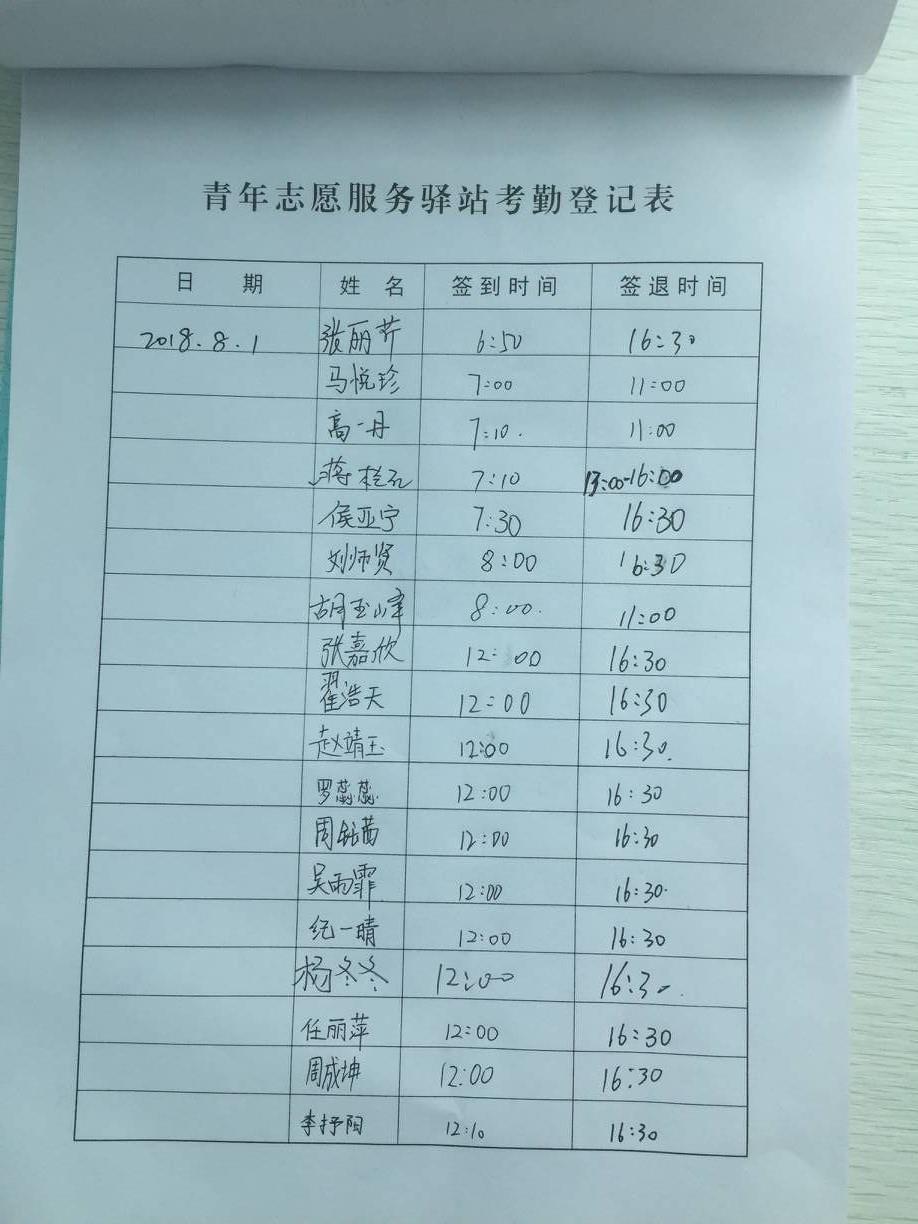 青年志愿服务驿站考勤登记表
日 期 姓 名 签到时间 签退时间
2018.8.1 张丽芹 6:50 16:30
马悦珍 7:00 11:00
高一丹 7:10. 11:00
蒋 7:10 13:00-16:00
侯亚宁 7:30 16:30
刘师贤 8:00 16:30
胡玉峰 8:00. 11:00
张嘉欣 12:00 16:30
翟浩天 12:00 16:30
赵靖玉 12:00 16:30.
罗蕊蕊 12:00 16:30
周钰茜 12:00 16:30
吴雨霏 12:00 16:30.
纪一晴 12:00 16:30
杨冬冬 12:00 16:30.
任丽萍 12:00 16:30
周成坤 12:00 16:30
李抒阳 12:10 16:30